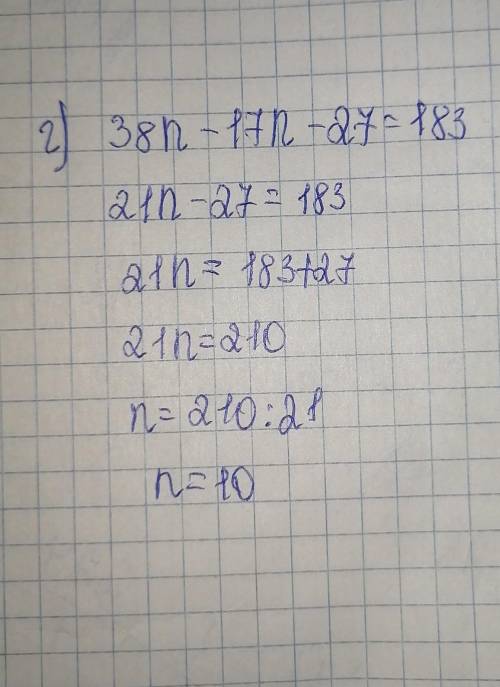 г) 38n - 17n - 27 = 183
21n - 27 = 183
21n = 183+27
21n = 210
n = 210 : 21
n = 10